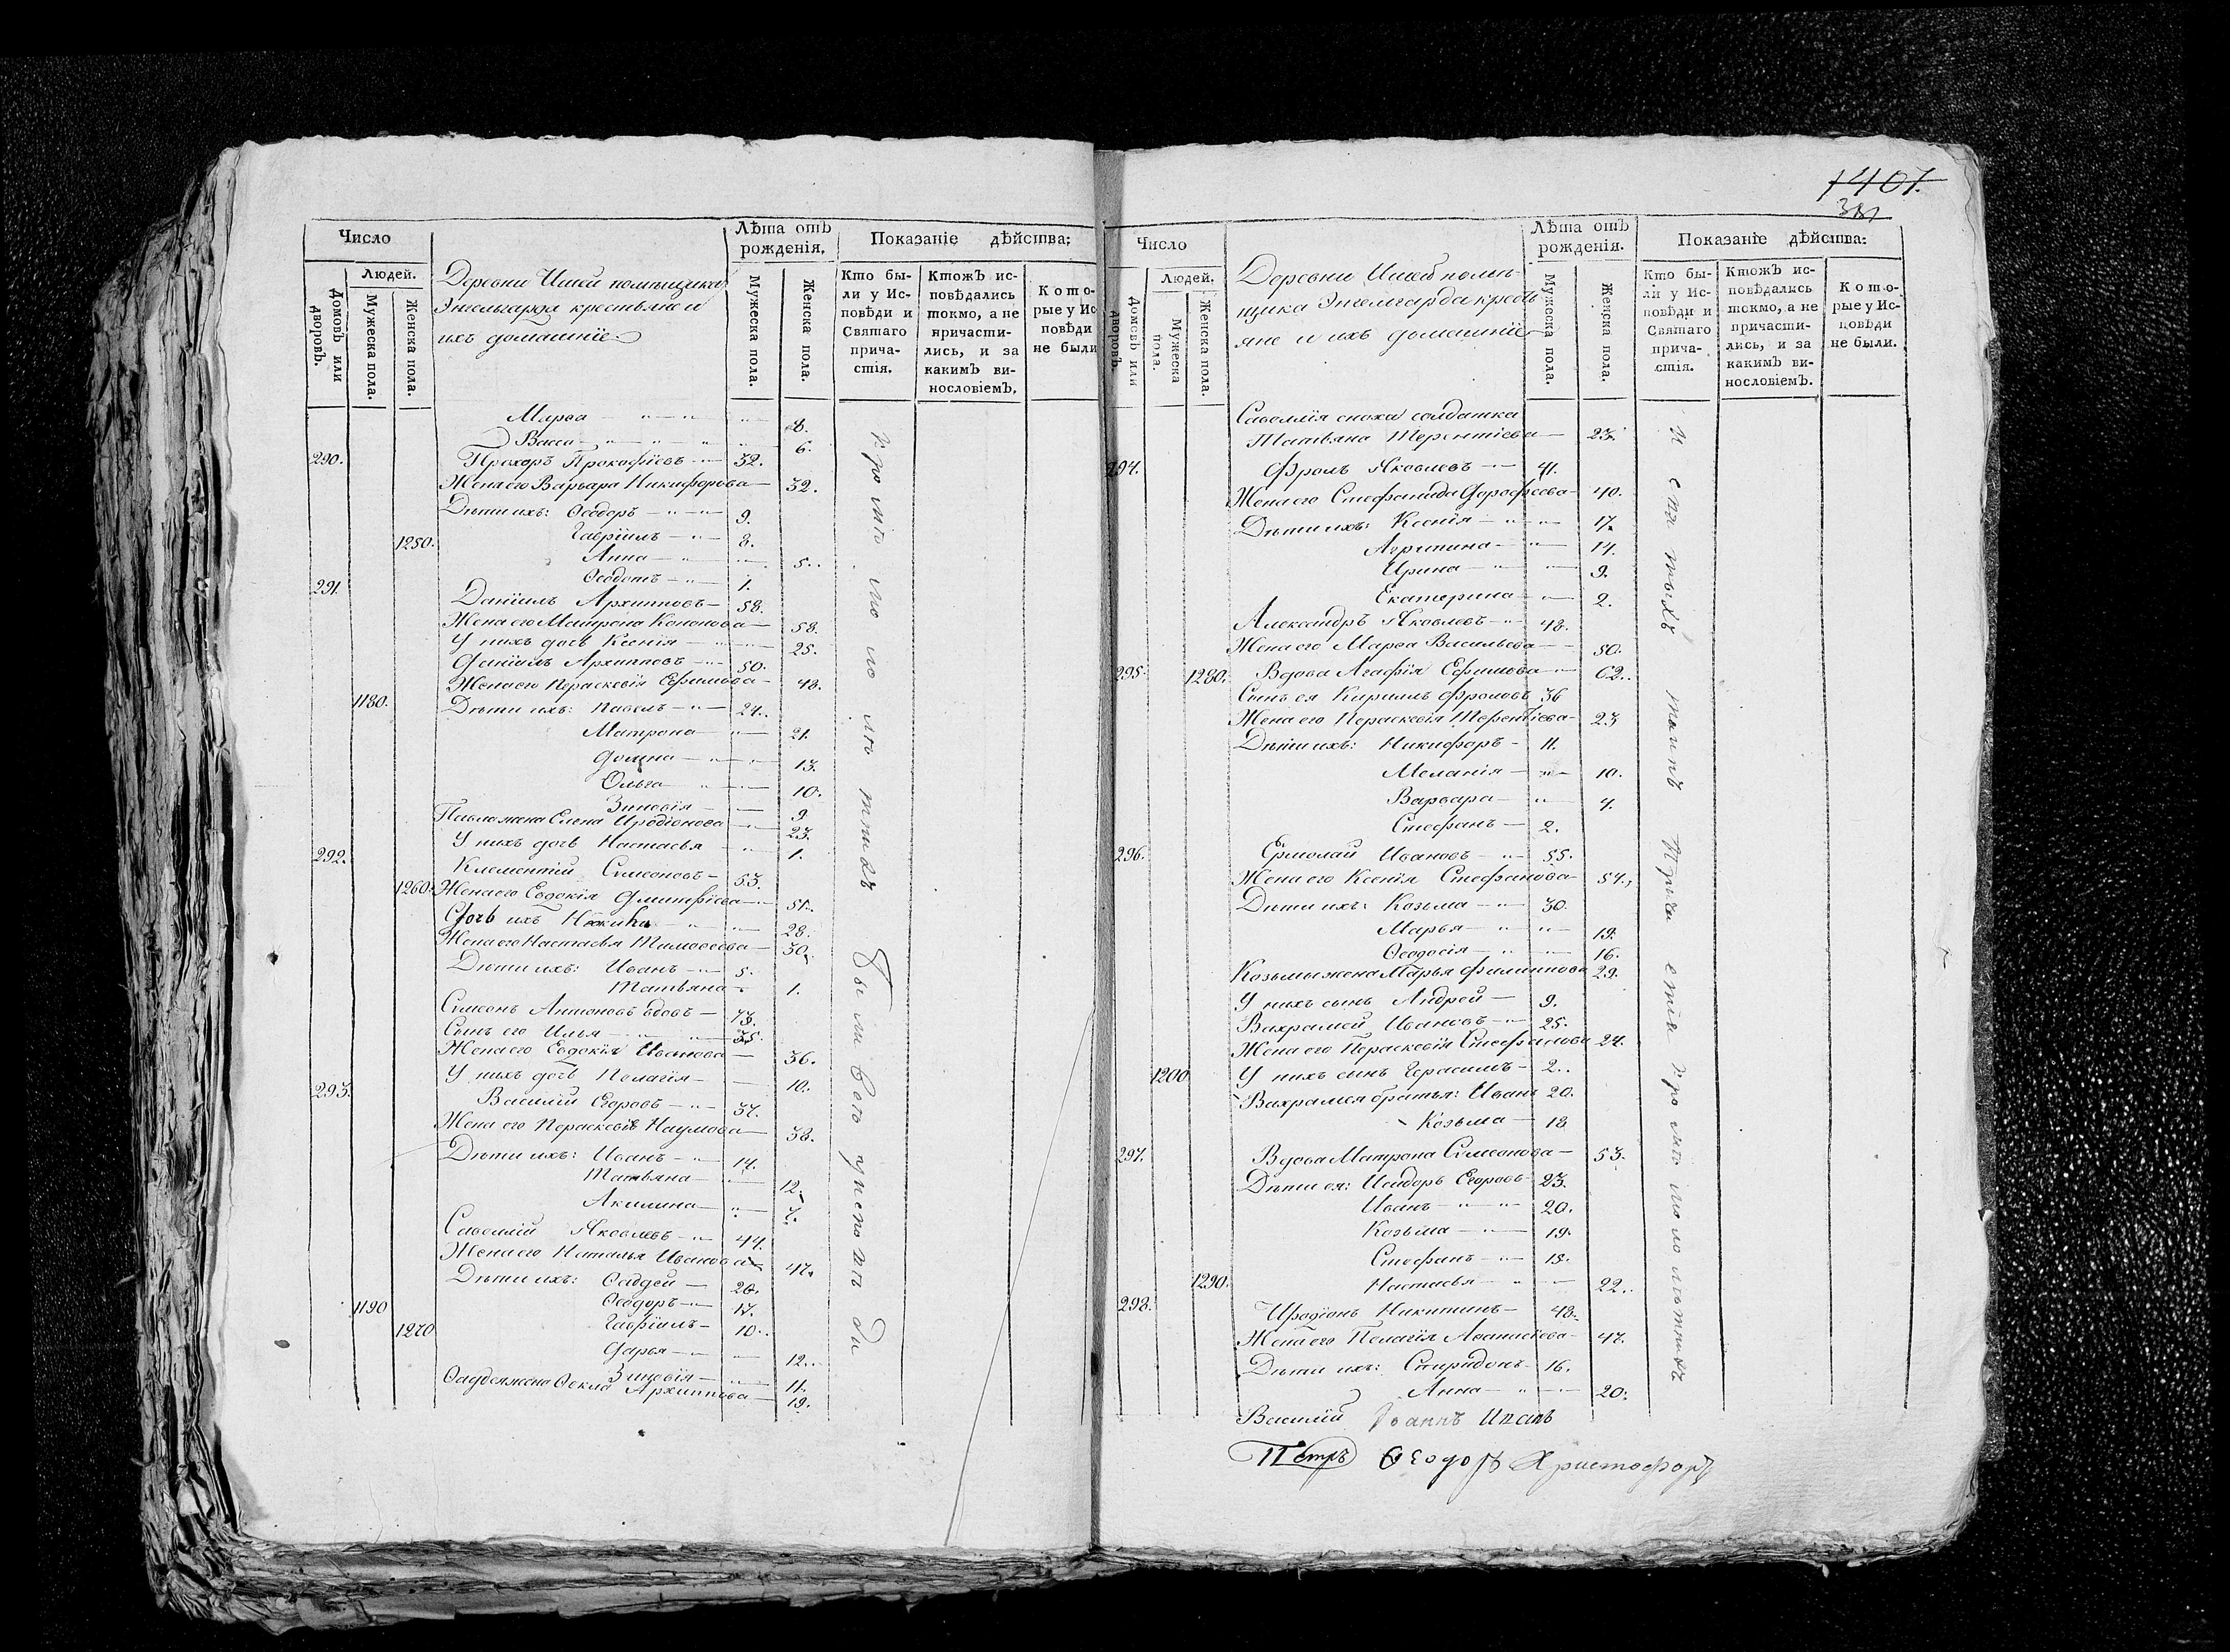 Число
Лѣта отъ рожденія.
Показаніе дѣйства:
Домовъ или дворовъ.
Людей.
Мужеска пола.
Женска пола.
Деревни Ишей помѣщика
Энгельгарда крестьяне и
ихъ домашніе
Мужеска пола.
Женска пола.
Кто были у Исповѣди и Святаго причастія.
Ктожъ исповѣдались токмо, а не причастились, и за какимъ винословіемъ.
Которые у Исповѣди не были
Марѳа — " — " " — 8.
Васса — " — " — " " — 6.
290. Прохоръ Прокофіевъ — " — 32.
Жена его Варвара Никифорова — 32.
Дѣти ихъ: Ѳеодоръ — " — " — 9.
1250. Гавріилъ — " — 8.
Анна — " — 5.
Ѳеодотъ — " — 1.
291. Даніилъ Архиповъ — 58.
Жена его Матрона Кононова — 58.
У нихъ дочь Ксенія — " — 25.
Даніилъ Архипповъ — " — 50.
Жена его Пераскевія Ефимова — 48.
1180. Дѣти ихъ: Павелъ — " — 24.
Матрона — " — 21.
Домна — " — 13.
Ольга — " — 10.
Зиновія — 9.
Павла жена Елена Иродіонова — 23.
У нихъ дочь Настасья — " — 1.
292. Климентій Симеоновъ — 53.
1260. Жена его Евдокія Дмитріева — 51.
ихъ — 28.
Жена его Настасья Тимоѳеева — 30.
Дѣти ихъ: Иванъ — " — 5.
Татьяна — 1.
Симеонъ Антоновъ вдовъ — 73.
Сынъ его Илья — " — 35.
Жена его Евдокія Иванова — 36.
У нихъ дочь Пелагія — 10.
293. Василій Егоровъ — " — 37.
Жена его Пераскевія Наумова — 38.
Дѣти ихъ: Иванъ — " — 14.
Татьяна — 12.
Акилина — " — 7.
Савелій Яковлевъ — " — 44.
Жена его Наталья Иванова — 47.
Дѣти ихъ: Ѳадѣй — 20.
1190 Ѳеодоръ — " — 17.
1270 Гавріилъ — 10.
Дарья — " — 12.
Зиновія — " — 11.
Ѳаддея жена Ѳекла Архиппова — 19.
1407.
Число
Лѣта отъ рожденія.
Показаніе дѣйства:
Домовъ или дворовъ.
Людей.
Мужеска пола.
Женска пола.
Деревни Ишей помѣ-
щика Энгелгарда кресть
яне и ихъ домашніе
Мужеска пола.
Женска пола.
Кто были у Исповѣди и Святаго причастія.
Ктожъ исповѣдались токмо, а не причастились, и за какимъ винословіемъ.
Которые у Исповѣди не были.
Савелія сноха солдатка
Татьяна Терентіева — 23.
294. Фролъ Яковлевъ — " — 41.
Жена его Стефанида Дорофеева — 40.
Дѣти ихъ: Ксенія — " — 17.
Агрипина — " — 14.
Ирина — " — 9.
Екатерина — " — 2.
Александръ Яковлевъ — " — 48.
Жена его Марѳа Васильева — 50.
295. 1280. Вдова Агафія Ефимова — " — 62.
Сынъ ея Кирилъ Фроловъ 36
Жена его Пераскевія Терентіева — 23
Дѣти ихъ: Никифоръ — 11.
Меланія — " — 10.
Варвара — " — 4.
Стефанъ — 2.
296. Ермолай Ивановъ — " — 55.
Жена его Ксенія Стефанова — 54.
Дѣти ихъ: Козьма — " — 30.
Марья — " — 19.
Ѳеодосія — " — 16.
Козьмы жена Марья Филиппова 29.
У нихъ сынъ Андрей — 9.
Вахрамей Ивановъ — " — 25.
Жена его Пераскевія Стефанова 24.
1200 У нихъ сынъ Герасимъ — 2.
Вахрамея братья: Иванъ 20.
Козьма — 18
297. Вдова Матрона Симеонова — 53.
Дѣти ея: Исидоръ Егоровъ 23.
Иванъ — " — " — 20.
Козьма — " — 19.
Стефанъ — " — 18.
1290. Настасья — " — 22.
298. Иродіонъ Никитинъ — 48.
Жена его Пелагія Аѳанасьева — 47.
Дѣти ихъ: Спиридонъ — 16.
Анна — " — 20.
Василій Іоаннъ
Петръ Ѳеодоръ Христофоръ